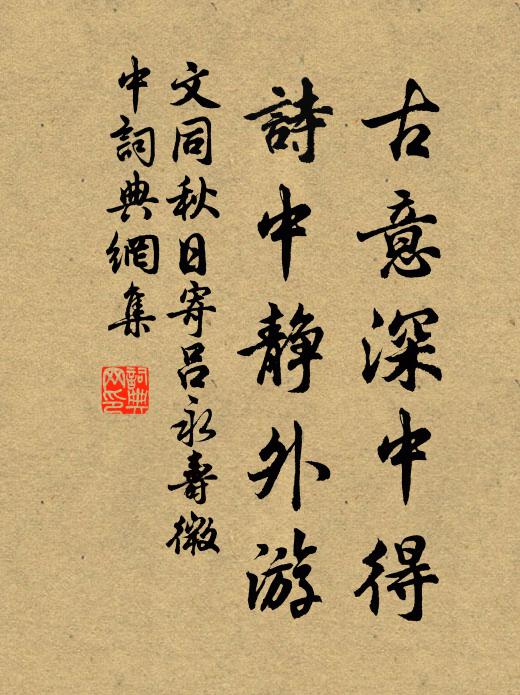 古意深中得
詩中静外游
文同秋日寄呂永壽微
中詞典網集
詞典
网印